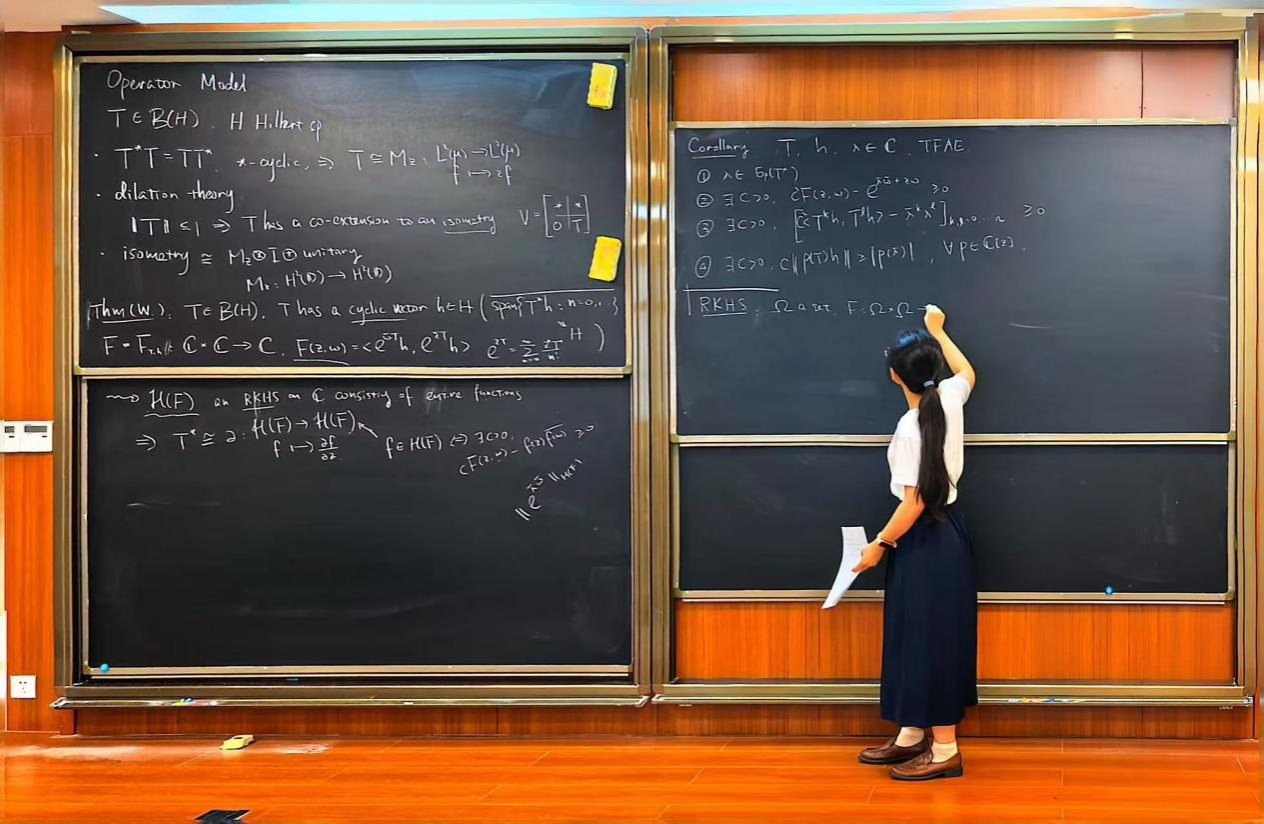 Operator Model
T ∈ B(H). H Hilbert sp
· T*T = TT*. *-cyclic, ⇒ T ≅ M_z : L²(μ) → L²(μ)
f ↦ zf
· dilation theory.
‖T‖ ≤ 1 ⇒ T has a co-extension to an isometry V = [* * ; 0 T]
· isometry ≅ M_z ⊗ I ⊕ unitary
M_z : H²(D) → H²(D)
Thm (W.): T ∈ B(H). T has a cyclic vector h ∈ H ( span{Tⁿh : n=0,...}
F = F_{T,h} : ℂ × ℂ → ℂ. F(z,w) = <e^{w̄T}h, e^{z̄T}h> e^{zT} = Σ_{n=0}^∞ zⁿTⁿ/n! = H )
⇝ H(F) an RKHS on ℂ consisting of entire functions
⇒ T* ≅ ∂ : H(F) → H(F)
f ↦ ∂f/∂z
f ∈ H(F) ⇔ ∃ c>0,
cF(z,w) − f(z)f(w)‾ ≥ 0
‖e^{λ̄z}‖_{H(F)}
Corollary T, h, λ ∈ ℂ. TFAE.
① λ̄ ∈ σp(T*)
② ∃ c>0, cF(z,w) − e^{λ̄w̄+λz} ≥ 0
③ ∃ c>0, [c<Tᵏh, Tˡh> − λ̄ᵏλˡ]_{k,l=0..n} ≥ 0
④ ∃ c>0, c‖p(T)h‖ ≥ |p(λ̄)|, ∀ p ∈ ℂ[z].
RKHS. Ω a set. F : Ω × Ω →